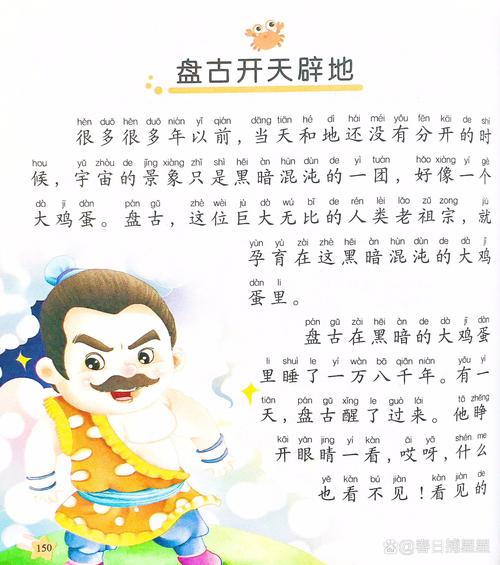 盘古开天辟地
hěn duō hěn duō nián yǐ qián dāng tiān hé dì hái méi yǒu fēn kāi de shí
很多很多年以前，当天和地还没有分开的时
hou yǔ zhòu de jǐng xiàng zhǐ shì hēi àn hùn dùn de yì tuán hǎo xiàng yí gè
候，宇宙的景象只是黑暗混沌的一团，好像一个
dà jī dàn pán gǔ zhè wèi jù dà wú bǐ de rén lèi lǎo zǔ zōng jiù
大鸡蛋。盘古，这位巨大无比的人类老祖宗，就
yùn yù zài zhè hēi àn hùn dùn de dà jī
孕育在这黑暗混沌的大鸡
dàn lǐ
蛋里。
pán gǔ zài hēi àn de dà jī dàn
盘古在黑暗的大鸡蛋
lǐ shuì le yí wàn bā qiān nián yǒu yì
里睡了一万八千年。有一
tiān pán gǔ xǐng le guò lái tā zhēng
天，盘古醒了过来。他睁
kāi yǎn jing yí kàn āi yā shén me
开眼睛一看，哎呀，什么
yě kàn bú jiàn kàn jiàn de
也看不见！看见的
150
@春日捕星星